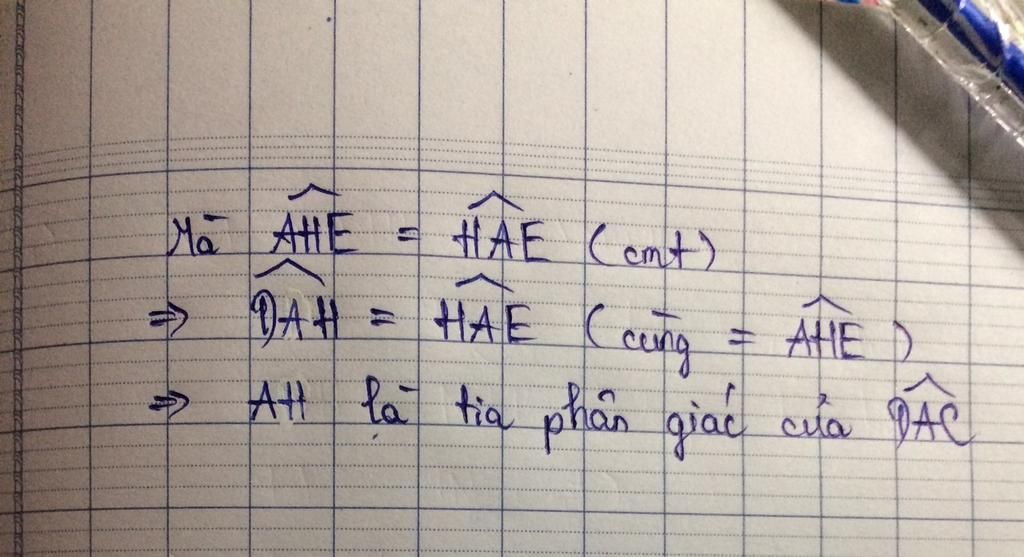 Mà \widehat{AHE} = \widehat{HAE} (cmt)
⇒ \widehat{DAH} = \widehat{HAE} (cùng = \widehat{AHE})
⇒ AH là tia phân giác của \widehat{DAC}